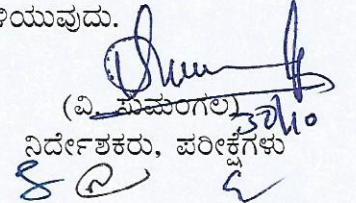 ಳಿಯುವುದು.
(ವಿ. ಸುಮಂಗಲ)
30/10
ನಿರ್ದೇಶಕರು, ಪರೀಕ್ಷೆಗಳು